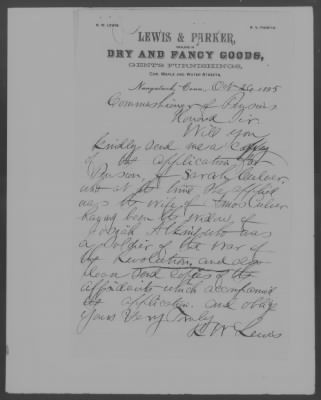 R. W. LEWIS
LEWIS & PARKER,
DEALERS IN
DRY AND FANCY GOODS,
GENTS FURNISHINGS,
COR. MAPLE AND WATER STREETS,
Naugatuck, Conn., Oct 1895
Commissioner of Pensions
Honored Sir
Will you
Kindly send me a Copy
of the application for
Pension, of Sarah Culver,
who at the time she applied
was the wife of Amos Culver
having been the widow of
Josiah who was
a soldier of the War of
the Revolution, and also
please send copies of the
affidavits which accompanied
the application. and oblige
Yours Very Truly
R W Lewis